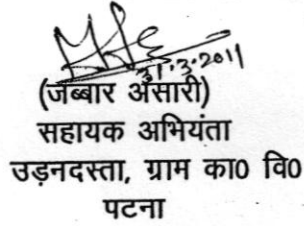 31.3.2011
(जब्बार अंसारी)
सहायक अभियंता
उड़नदस्ता, ग्राम का0 वि0
पटना